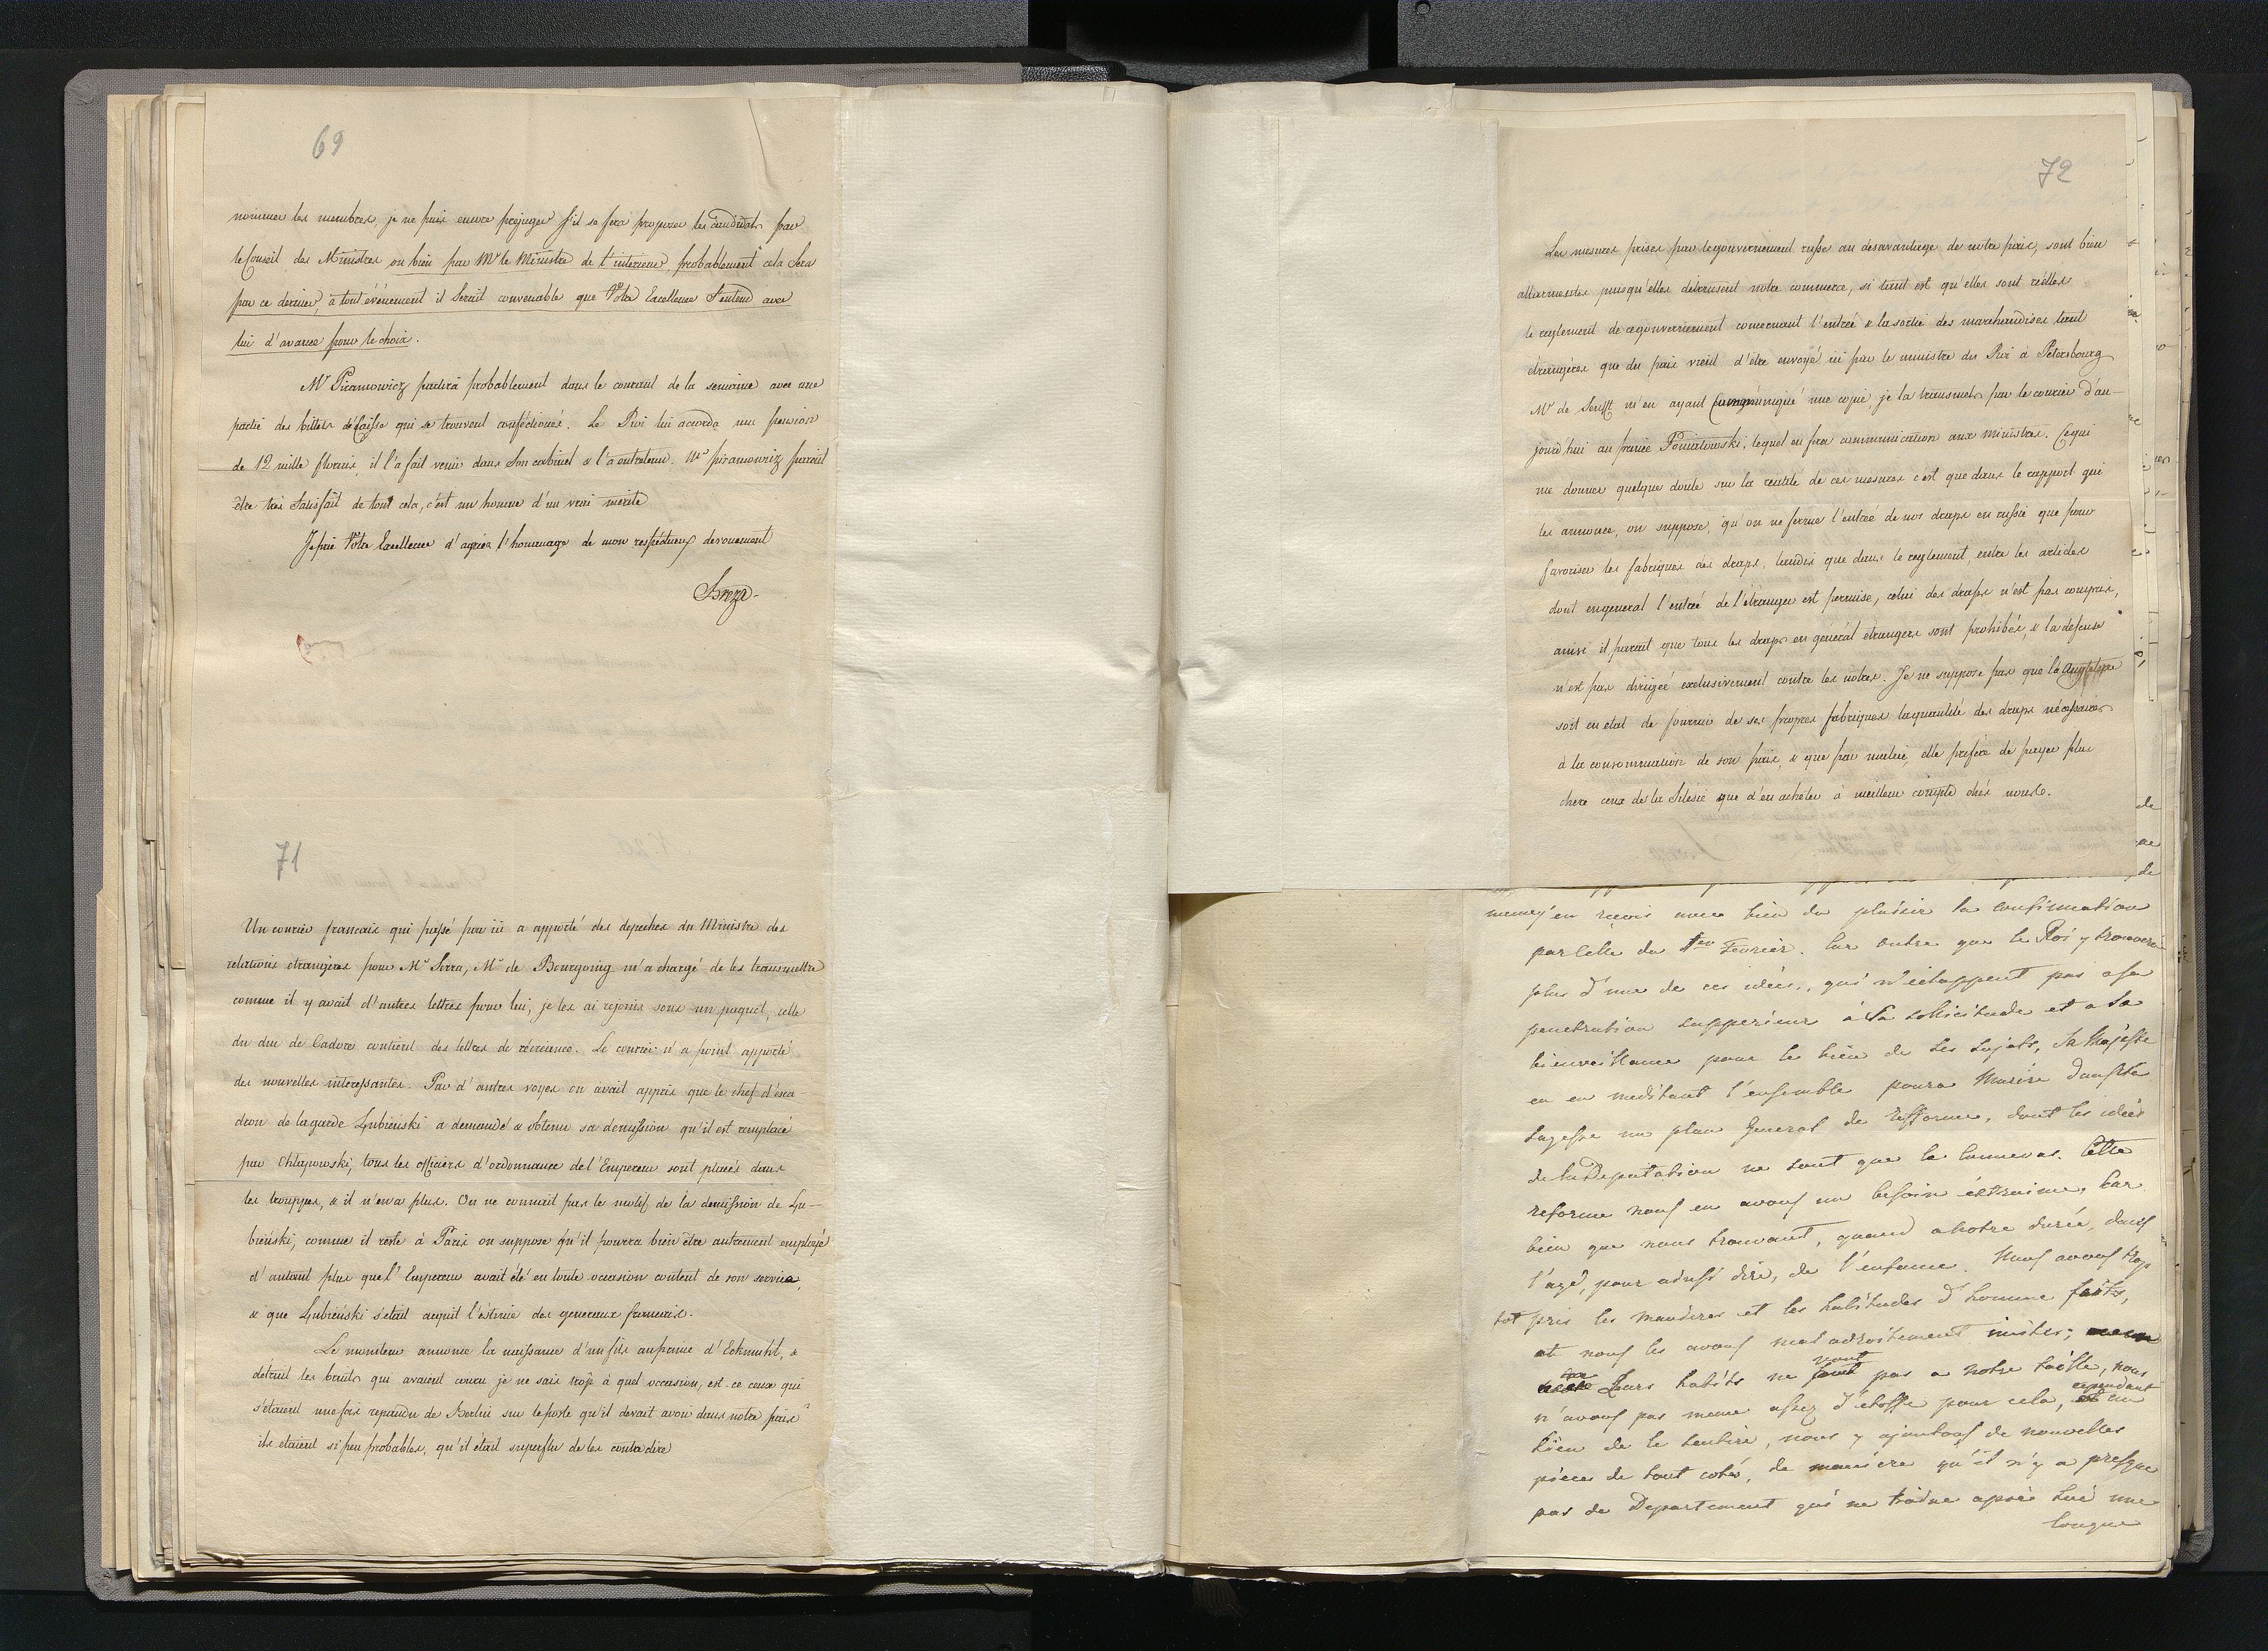 69
nommer les membres, je ne puis encore préjuger s'il se fera proposer les candidats par
le Conseil des Ministres ou bien par Mr le Ministre de l'interieur, probablement cela sera
par ce dernier, à tout événement il serait convenable que Vôtre Excellence s'entend avec
lui d'avance pour le choix.
Mr Piramowicz partira probablement dans le courant de la semaine avec une
partie des billets de Caisse qui se trouvent conféctionés. Le Roi lui acorda une pension
de 12 mille florins, il l'a fait venir dans son cabinet & l'a entretenu. Mr piramowiz parait
être très satisfait de tout cela, c'est un homme d'un vrai merite
Je prie Vôtre Excellence d'agréer l'hommage de mon respéctueux devouement
Breza
71
Un courier francais qui passé par ici a apporté des depeches du Ministre des
relations etrangères pour Mr Serra, Mr de Bourgoing m'a chargé de les transmettre
comme il y avait d'autres lettres pour lui, je les ai rejoins sous un paquet, celle
du duc de Cadore contient des lettres de récréance. Le courier n'a point apporté
des nouvelles interessantes. Par d'autres voyes on avait appris que le chef d'esca-
dron de la garde Lubieński a demandé & obtenu sa demission qu'il est remplacé
par Chlapowski, tous les officiers d'ordonnance de l'Empereur sont placés dans
les trouppes, & il n'en a plus. On ne connait pas le motif de la demission de Lu-
bieński, comme il reste à Paris on suppose qu'il pourra bien être autrement employé
d'autant plus que l'Empereur avait été en toute occasion content de son service,
& que Lubieński s'etait acquit l'éstime des generaux francais.
Le moniteur annonce la naissance d'un fils au prince d'Eckmuhl, &
détruit les bruits qui avaient couru je ne sais trop à quel occasion, est-ce ceux qui
s'etaient une fois repandu de Berlin sur le poste qu'il devait avoir dans notre pais
ils etaient si peu probables, qu'il était superflu de les contredire
72
Les mesures prises par le gouvernement russe au desavantage de notre pais, sont bien
allarmantes puisqu'elles detruisent notre commerce, si tant est qu'elles sont réélles
le reglement de ce gouvernement concernant l'entrée & la sortie des marchandises tant
étrangères que du pais vient d'être envoyé ici par le ministre du Roi à Petersbourg
Mr de Senfft m'en ayant Communiqué une copie, je la transmets par le courier d'au-
jourd'hui au prince Poniatowski, lequel en fera communication aux ministres. Ce qui
me donner quelque doute sur la réalité de ces mesures c'est que dans le rapport qui
les annonce, on suppose, qu'on ne ferme l'entrée de nos draps en russie que pour
favoriser les fabriques des draps, tandis que dans le reglement, entre les articles
dont en general l'entrée de l'étranger est permise, celui des draps n'est pas compris,
ainsi il parait que tous les draps en général etrangers sont prohibés, & la defense
n'est pas dirigée exclusivement contre les notres. Je ne suppose pas que la
soit en etat de fournir de ses propres fabriques la quantité des draps nécessaires
à la consommation de son pais, & que par malice, elle prefère de payer plus
chere ceux de la Silesie que d'en acheter à meilleur compte chés nous.
meme j'en reçois avec bien du plaisir la confirmation
par Celle du 1er Fevrier. Car outre que le Roi y trouvera
plus d'une de ces idées, qui n'echappent pas a sa
penetration superieur à sa sollicitude et a sa
bienveillance pour le bien de ses sujets, Sa Majesté
en en meditant l'ensemble poura Murir dans sa
sagesse un plan General de Refforme, dont les idées
de la Deputation ne sont que le Cannevas. Cette
reforme nous en avons un besoin extraime, Car
bien que nous trouvant, quand a notre durée, dans
l'age, pour ainsi dire, de l'enfance. Nous avons trop
tot pris les manieres et les habitudes d'homme faits,
et nous les avons mal adroitement imités;
Leurs habits ne vont pas a notre taille, nous
n'avons pas meme assez d'etoffe pour cela, cependant
bien de le sentire, nous y ajoutons de nouvelles
pièces de tout coté, de maniére qu'il n'y a presque
pas de Departement qui ne traine après lui une
longue